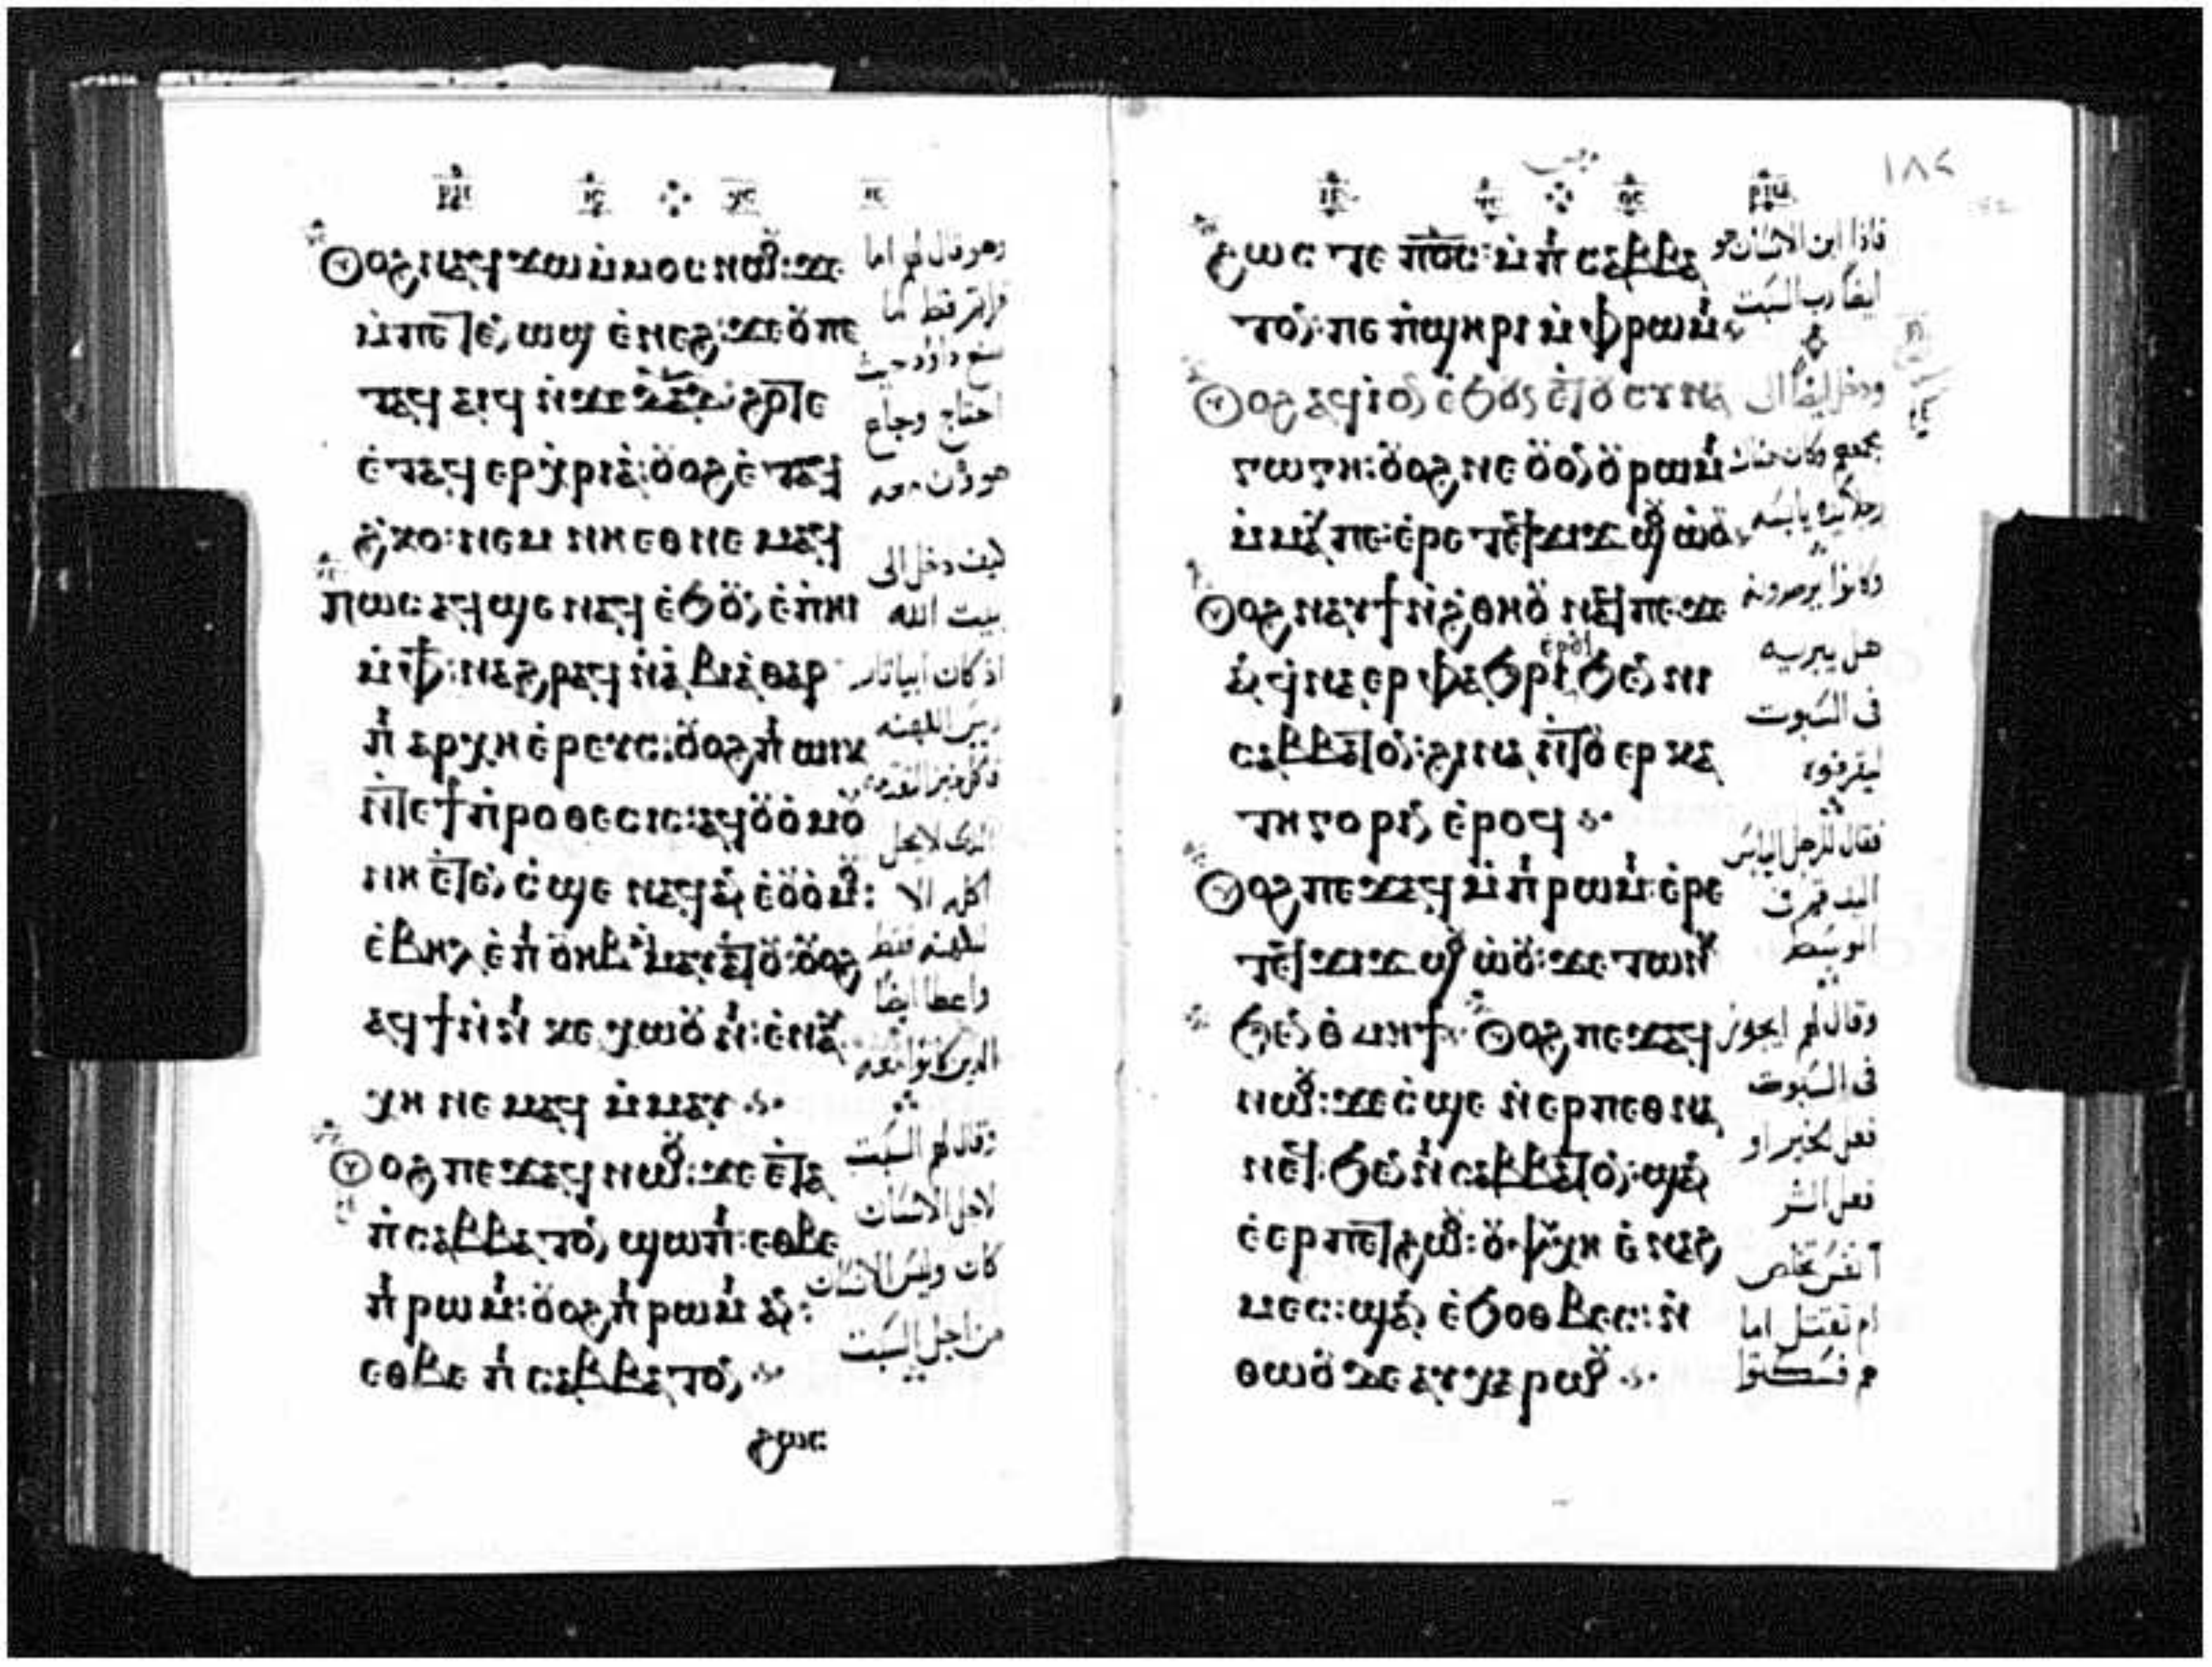 ⲟⲩⲟϩ ⲛⲁϥϫⲱ ⲙ̀ⲙⲟⲥ ⲛⲱⲟⲩ: ϫⲉ
ⲙ̀ⲡⲉⲧⲉⲛⲱϣ ⲉ̀ⲛⲉϩ: ϫⲉ ⲟⲩ ⲡⲉ
ⲧⲁϥ ⲁⲓϥ ⲛ̀ϫⲉ ⲇⲁⲇ: ϩⲟⲧⲉ
ⲉ̀ⲧⲁϥ ⲉⲣⲭ̀ⲣⲓⲁ̀: ⲟⲩⲟϩ ⲉ̀ⲧⲁϥ
ϩ̀ⲕⲟ: ⲛⲉⲙ ⲛⲏ ⲉⲑⲛⲉⲙⲁϥ
ⲡⲱⲥ ⲁϥϣⲉ ⲛⲁϥ ⲉ̀ϧⲟⲩⲛ ⲉ̀ⲡⲏⲓ
ⲙ̀ⲫϯ: ⲛⲁϩⲣⲁϥ ⲛ̀ⲁ̀ⲃⲓⲁ̀ⲑⲁⲣ
ⲡ̀ⲁⲣⲭⲏⲉ̀ⲣⲉⲩⲥ: ⲟⲩⲟϩ ⲡ̀ⲱⲓⲕ
ⲛ̀ⲧⲉ ϯⲡ̀ⲣⲟⲑⲉⲥⲓⲥ: ⲁϥⲟⲩⲟ̀ⲙⲟⲩ
ⲛⲏ ⲉ̀ⲧⲉⲛⲥ̀ϣⲉ ⲛⲁϥ ⲁⲛ ⲉ̀ⲟⲩⲟ̀ⲙⲟⲩ:
ⲉ̀ⲃⲏⲗ ⲉ̀ⲡ̀ⲟⲩⲏⲃ ⲙ̀ⲙⲁⲩⲁⲧⲟⲩ: ⲟⲩⲟϩ
ⲁϥϯ ⲛ̀ⲛ̀ⲕⲉⲭⲱⲟⲩⲛⲓ: ⲉ̀ⲛⲁⲩ
ⲭⲏ ⲛⲉⲙⲁϥ ⲙ̀ⲙⲁⲩ
ⲟⲩⲟϩ ⲡⲉϫⲁϥ ⲛⲱⲟⲩ: ϫⲉ ⲉ̀ⲧⲁ
ⲡ̀ⲥⲁⲃⲃⲁⲧⲟⲛ ϣⲱⲡⲓ: ⲉⲑⲃⲉ
ⲡ̀ⲣⲱⲙⲓ: ⲟⲩⲟϩ ⲡ̀ⲣⲱⲙⲓ ⲁⲛ:
ⲉⲑⲃⲉ ⲡ̀ⲥⲁⲃⲃⲁⲧⲟⲛ
ϩⲱⲥ
وهو قال لهم اما
قراتم قط ما
صنع داوود حيث
احتاج وجاع
هو ومن معه
كيف دخل الى
بيت الله
اذ كان ابياتار
ريس الكهنه
الدى لا يحل
اكله الا
للكهنه فقط
واعطا ايضا
الدين كانوا معه
وقال لهم السبت
لاجل الانسان
كان وليس الانسان
من اجل السبت
١٨٤
ϩⲱⲥ ⲧⲉ ⲡⲟ̅ⲥ̅: ⲙ̀ⲡ̀ⲥⲁⲃⲃⲁ
ⲧⲟⲛ: ⲡⲉ ⲡ̀ϣⲏⲣⲓ ⲙ̀ⲫⲣⲱⲙⲓ
ⲟⲩⲟϩ ⲁϥⲓ̀ ⲟⲛ ⲉ̀ϧⲟⲩⲛ ⲉ̀ⲧⲟⲩⲥⲩⲛⲁ
ⲅⲱⲅⲏ: ⲟⲩⲟϩ ⲛⲉ ⲟⲩⲟⲛ ⲟⲩⲣⲱⲙⲓ
ⲙ̀ⲙⲁⲩ ⲡⲉ: ⲉ̀ⲣⲉ ⲧⲉϥϫⲓϫ ϣⲟⲩⲱ̀ⲟⲩ
ⲟⲩⲟϩ ⲛⲁⲩϯⲛ̀ϩ̀ⲑⲏⲟⲩ ⲛⲁϥ ⲡⲉ: ϫⲉ
ⲁⲛ ϥ̀ⲛⲁⲉⲣⲫⲁϧⲣⲓ ⲉⲣⲟϥ ϧⲉⲛ ⲛⲓ
ⲥⲁⲃⲃⲁⲧⲟⲛ: ϩⲓⲛⲁ ⲛ̀ⲧⲟⲩⲉⲣⲕⲁ
ⲧⲏⲅⲟⲣⲓⲛ ⲉ̀ⲣⲟϥ
ⲟⲩⲟϩ ⲡⲉϫⲁϥ ⲙ̀ⲡ̀ⲣⲱⲙⲓ: ⲉ̀ⲣⲉ
ⲧⲉϥϫⲓϫ ϣⲟⲩⲱ̀ⲟⲩ: ϫⲉ ⲧⲱⲛⲕ
ϧⲉⲛ ⲑ̀ⲙⲏϯ ⲟⲩⲟϩ ⲡⲉϫⲁϥ
ⲛⲱⲟⲩ: ϫⲉ ⲥ̀ϣⲉ ⲛ̀ⲉⲣⲡⲉⲑⲛⲁ
ⲛⲉϥ ϧⲉⲛ ⲛ̀ⲥⲁⲃⲃⲁⲧⲟⲛ: ϣⲁⲛ
ⲉ̀ⲉⲣⲡⲉⲧϩⲱⲟⲩ: ⲟⲩⲯⲩⲭⲏ ⲉ̀ⲛⲁϩ
ⲙⲉⲥ: ϣⲁⲛ ⲉ̀ϧⲟⲑⲃⲉⲥ: ⲛ̀
ⲑⲱⲟⲩ ⲇⲉ ⲁⲩⲭⲁⲣⲱⲟⲩ
فاذا ابن الانسان هو
ايضا رب السبت
ودخل ايضا الى
مجمعهم وكان هناك
رجلا يده يابسه
وكانوا يرصدونه
هل يبريه
فى السبوت
ليقرفوه
فقال للرجل اليابس
اليد قم فى
الوسط
وقال لهم ايجوز
فى السبوت
فعل الخير او
فعل الشر
انفس تخلص
ام تقتل اما
هم فسكتوا